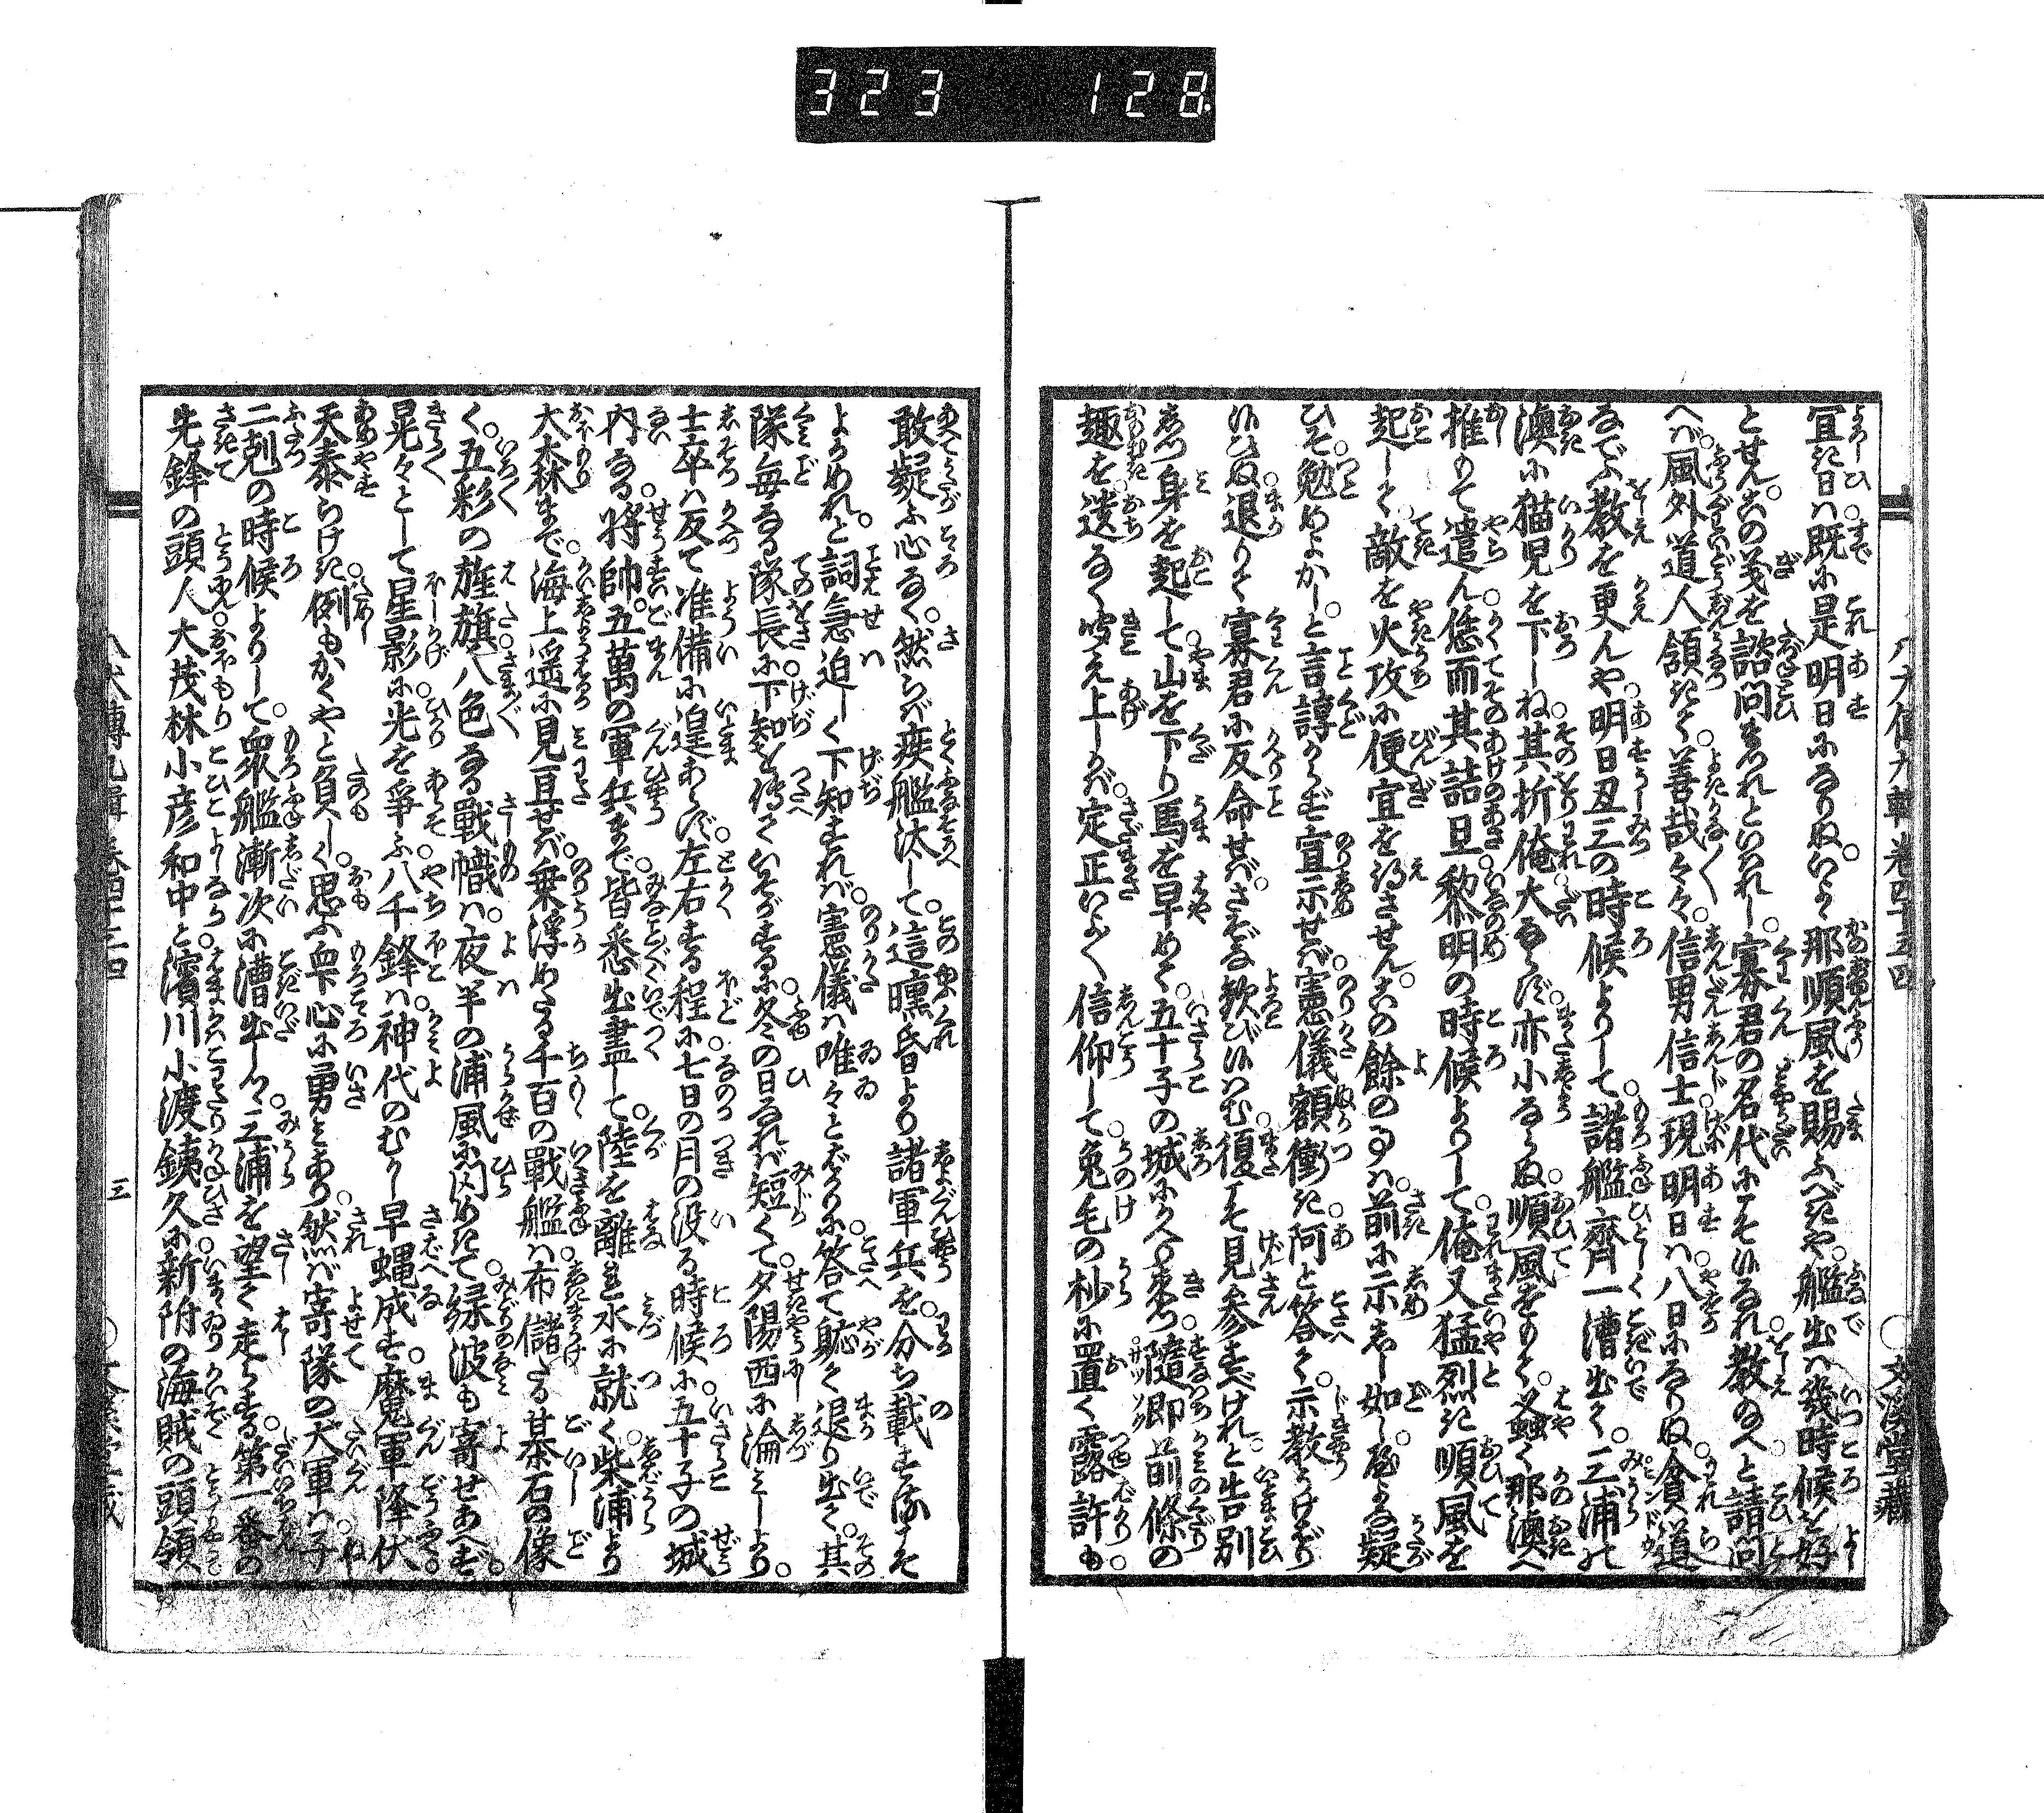 323 128
宜き日ハ既に是明日になりぬいかで那順風を賜ふべきや艦出ハ幾時候を好
とせんこの義を諮問まつれといはれし寡君の名代にこそ侍るなれ教給へと請問
へバ風外道人頷きて善哉々々信男信士現明日ハ八日になりぬ貧道
なでふ教を更んや明日丑三の時候よりして諸艦齊一漕出て三浦の
澳に猫児を下しね其折俺大ならず亦小ならぬ順風をもて蚤く那澳へ
推もて遣ん恁而其詰旦黎明の時候よりして俺又猛烈き順風を
起して敵を火攻に便宜を得させんこの餘の事ハ前に示しし如し努な疑
ひそ勉めよかしと言諄からず宣示せバ憲儀額衝き阿と答て示教うけ給り
侍りぬ退りて寡君に反命せバさぞな歓び侍らむ復こそ見参すべけれと告別
しつ身を起して山を下り馬を早めて五十子の城にかへり来ぬ隨即前條の
趣を遺なく聞え上しかバ定正いよ〱信仰して兔毛の杪に置く露許も
敢疑ふ心なく然らバ疾艦汰して這曛昏より諸軍兵を分ち載するこそ
よかめれと詞急迫しく下知すれバ憲儀ハ唯々とばかりに答て躬て退り出て其
隊毎なる隊長に下知を傳ていそがするに冬の日なれバ短くて夕陽西に淪みしより
士卒ハ反て准備に遑あらず左右する程に七日の月の没る時候に五十子の城
内なる將帥五萬の軍兵まで皆悉出盡して陸を離れ水に就く柴浦より
大森まで海上遥に見亘せバ乗浮めたる千百の戰艦ハ布儲たる棊石の像
く五彩の旌旗八色なる戰幟ハ夜半の浦風に閃めきて緑波も寄せあへず
晃々として星影に光を爭ふ八千鋒ハ神代のむかし早蠅成す魔軍降伏
天泰らけき例もかくやと負しく思ふ衆心に勇みあり然バ寄隊の大軍ハ子
二剋の時候よりして衆艦漸次に漕出しつ三浦を望て走らする第一番の
先鋒の頭人大茂林小彦和中と濱川小渡銕久に新附の海賊の頭領
八犬傳九輯 巻四十三四 三 文溪堂藏